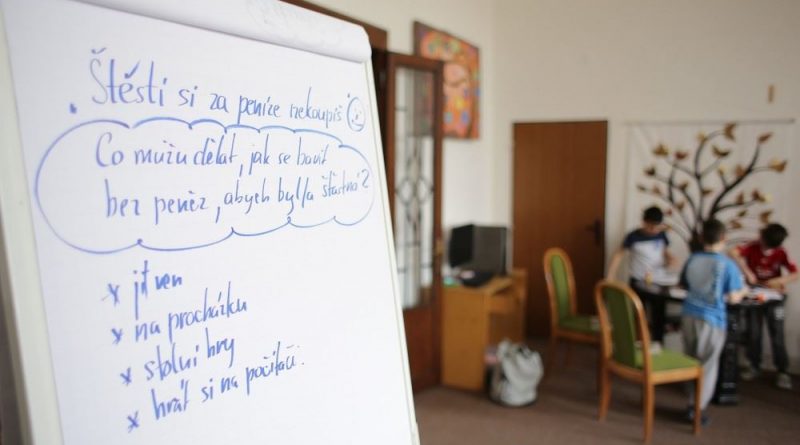 Štěstí si za peníze nekoupíš
Co můžu dělat, jak se bavit
bez peněz, abych byl/a šťastná?
x jít ven
x na procházku
x stolní hry
x hrát si na počítači.